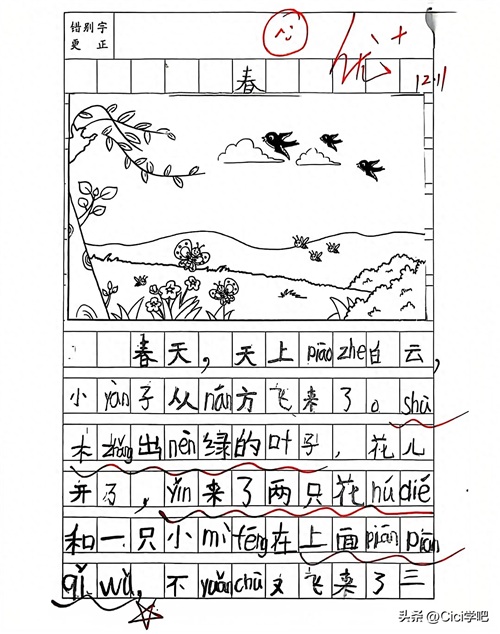 错别字
更 正
优+
12.11
春
春天，天上piāo zhe白云，
小yàn子从nán方飞来了。shù
木zhǎng出nèn绿的叶子，花儿
开了，yǐn来了两只花húdié
和一只小mì fēng在上面piān piān
qǐ wǔ，不yuǎn chù又飞来了三
头条 @Cici学吧